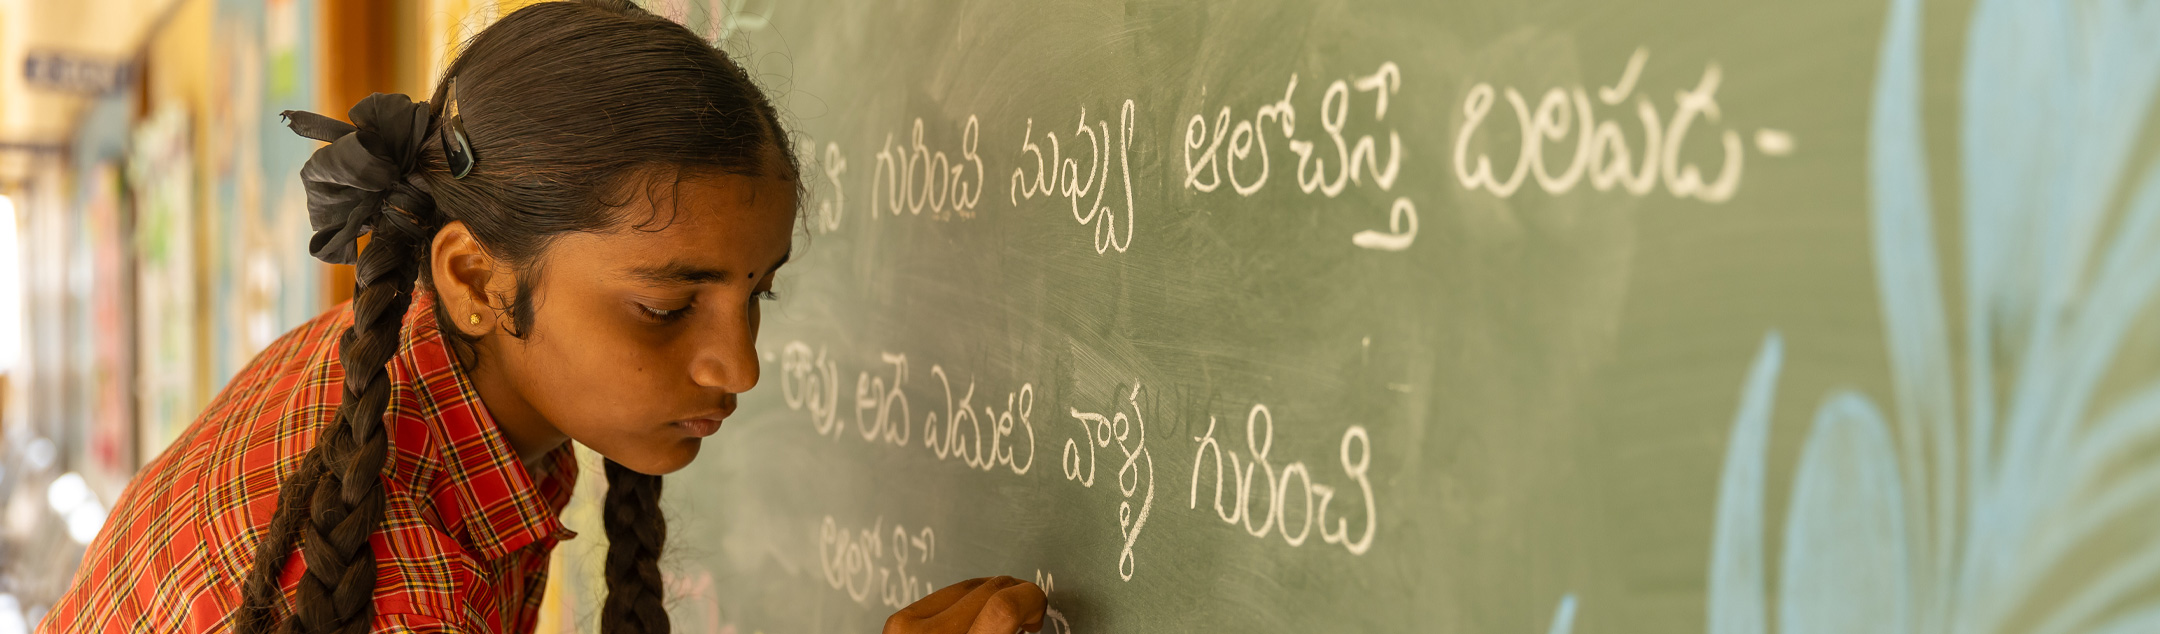 గురించి నువ్వు ఆలోచిస్తే బలపడ-
-తావు, అదే ఎదుటి వాళ్ళ గురించి
ఆలోచిస్తే